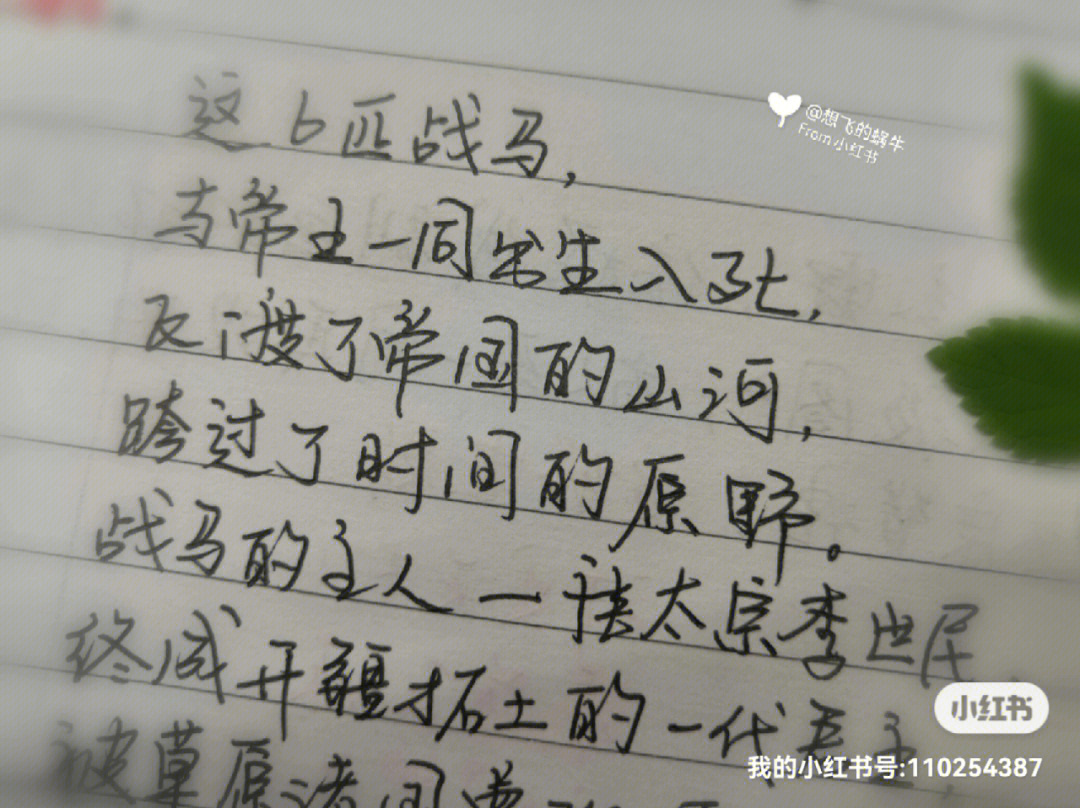 这6匹战马,
与帝王一同出生入死,
反渡了帝国的山河,
跨过了时间的原野。
战马的主人一唐太宗李世民,
终成开疆拓土的一代君主,
被草原诸同尊
@想飞的蜗牛
From 小红书
小红书
我的小红书号:110254387